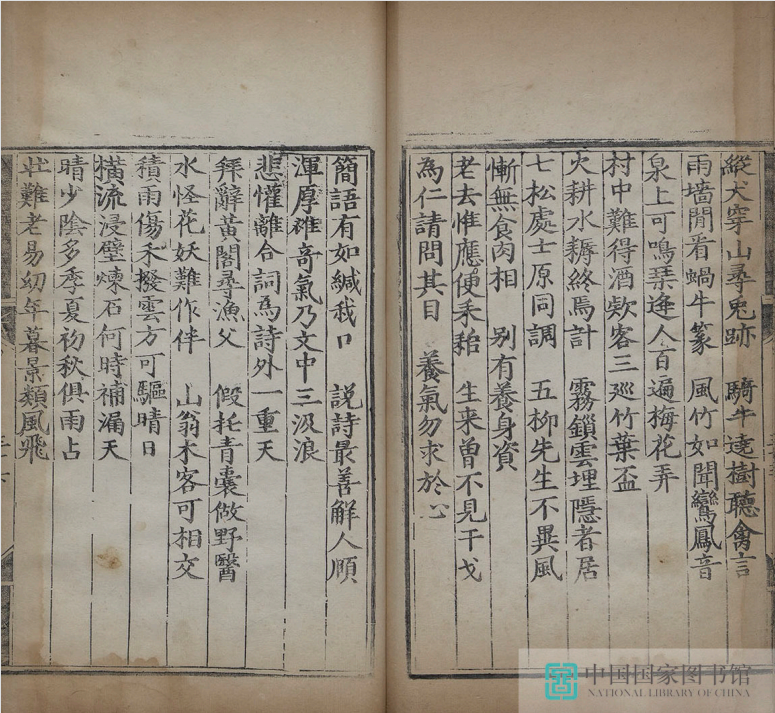 縱犬穿山尋兎跡　騎牛遶樹聽禽言
雨墻閒看蝸牛篆　風竹如聞鸞鳳音
泉上可鳴琹逢人百遍梅花弄
村中難得酒欵客三廵竹葉盃
火耕水耨終焉計　霧鎖雲埋隱者居
七松處士原同調　五柳先生不異風
慚無食肉相　别有養身資
老去惟應便耒耜　生来曾不見干戈
為仁請問其目　養氣勿求於心
簡語有如緘我口　説詩最善解人頤
渾厚雄竒氣乃文中三汲浪
悲懽離合詞為詩外一重天
拜辭黃閣尋漁父　假托青囊做野醫
水怪花妖難作伴　山翁木客可相交
積雨傷禾撥雲方可驅晴日
橫流浸壁煉石何時補漏天
晴少陰多季夏初秋俱雨占
壯難老易幼年暮景類風飛
中国国家图书馆
NATIONAL LIBRARY OF CHINA